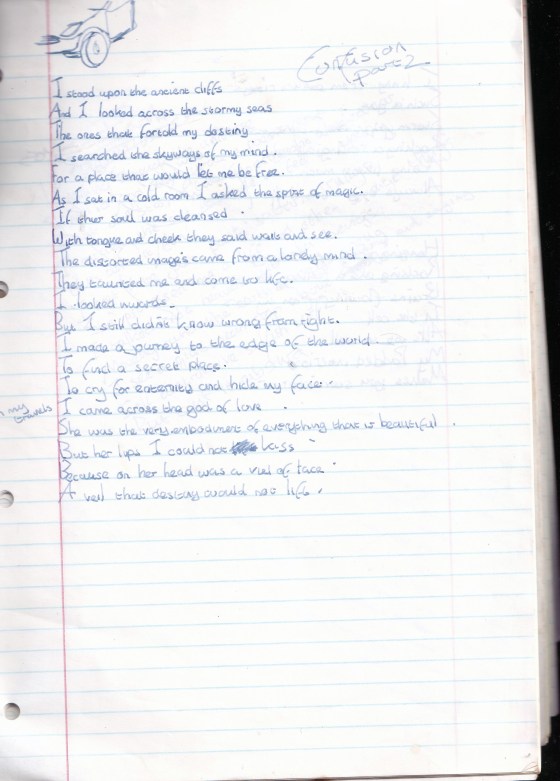 Confusion
part 2
I stood upon the ancient cliffs
And I looked across the stormy seas
The ones that fortold my destiny
I searched the skyways of my mind.
For a place that would let me be free.
As I sat in a cold room I asked the spirit of magic.
If ther soul was cleansed.
With tongue and cheek they said waits and see.
The distorted images came from a lonely mind.
They taunted me and came to life.
I looked inwards.
But I still didn't know wrong from right.
I made a journey to the edge of the world..
To find a secret place.
To cry for enternity and hide my face..
my travels
I came across the god of love.
She was the very embodiment of everything that is beautiful.
But her lips I could not kiss
Because on her head was a veil of
A veil that destiny would not lift.